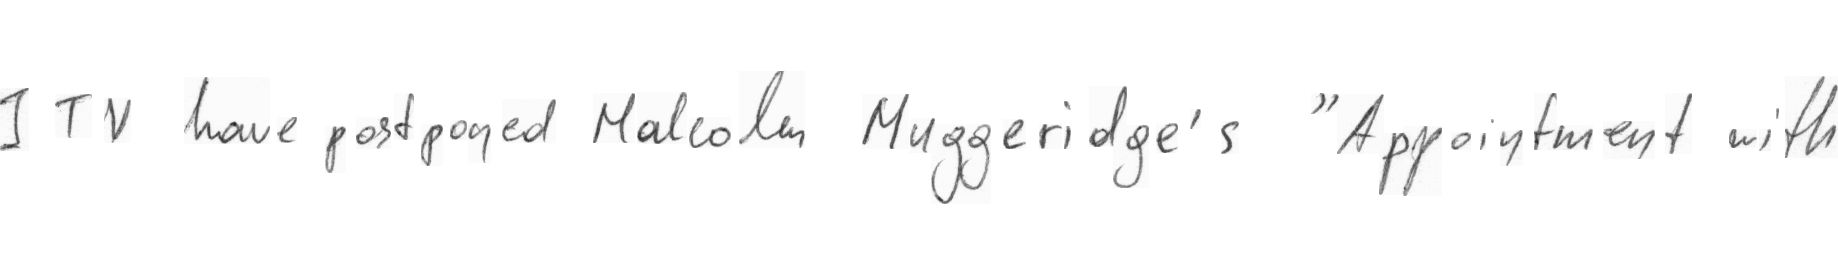 ITV have postponed Malcolm Muggeridge's "Appointment with